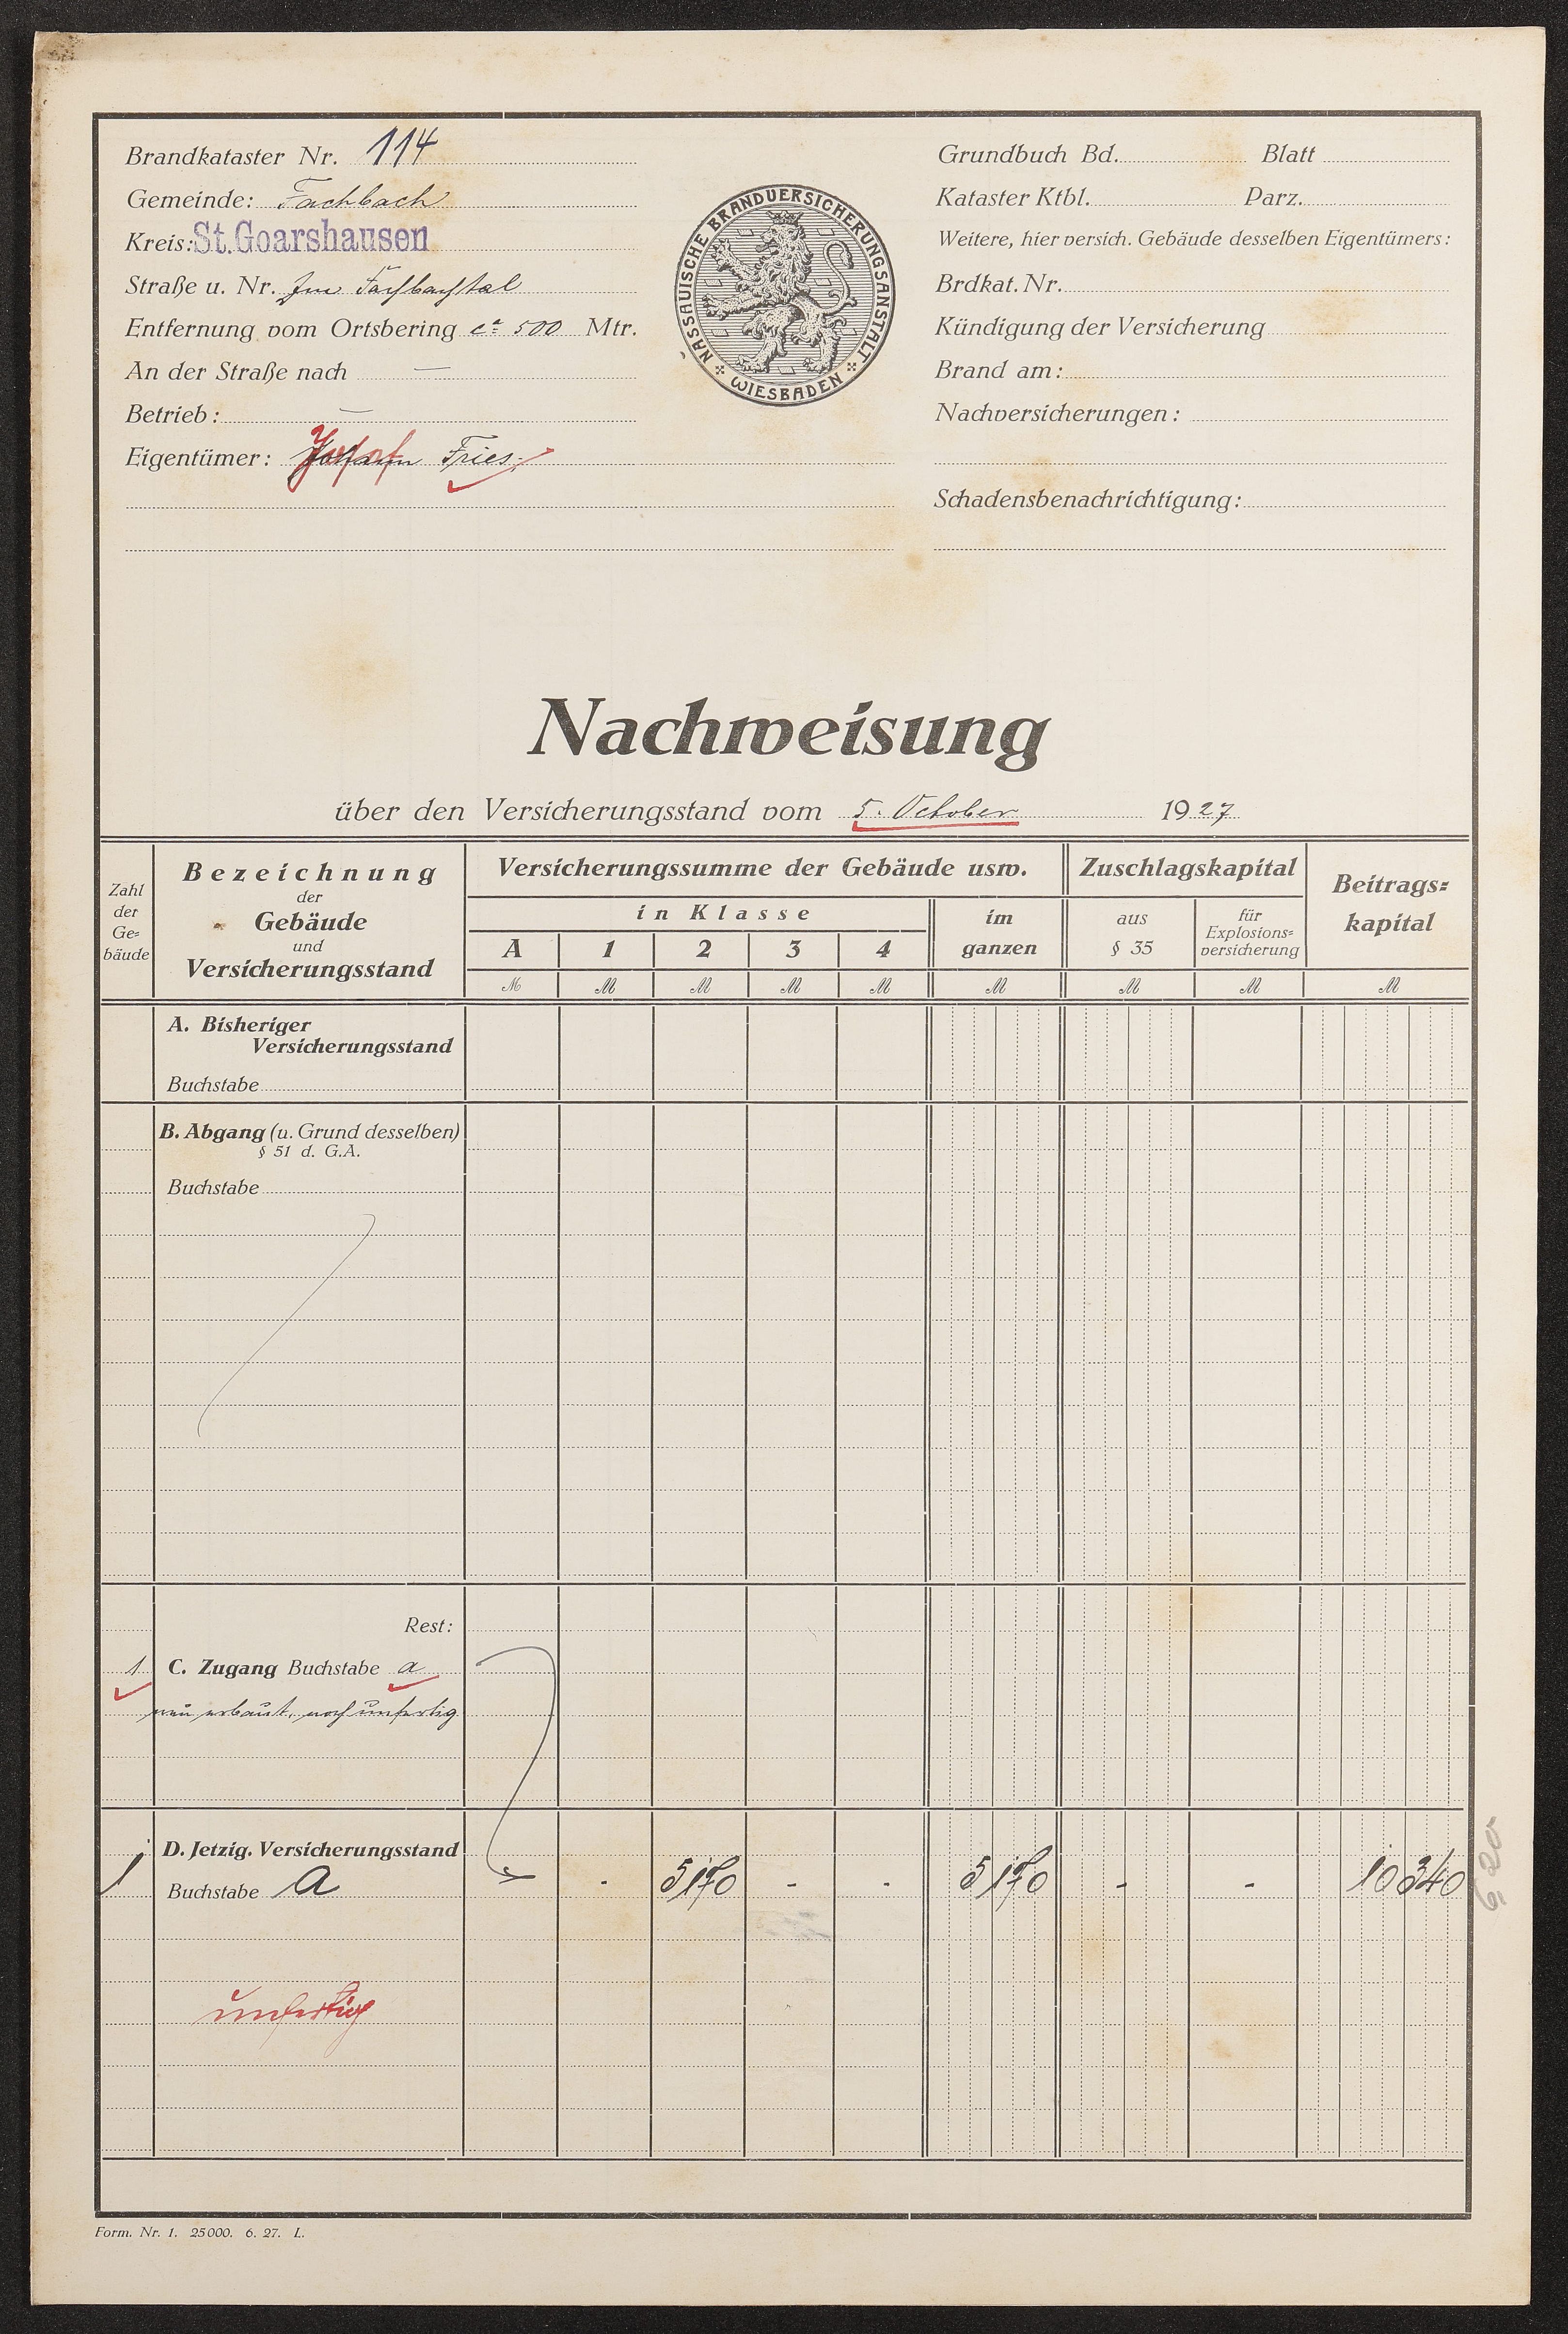 Brandkataster Nr. 114
Gemeinde: Fachbach
Kreis: St. Goarshausen
Straße u. Nr. Im Fachbachtal
Entfernung vom Ortsbering ca 500 Mtr.
An der Straße nach —
Betrieb: —
Eigentümer: Josef Fries
NASSAUISCHE BRANDVERSICHERUNGSANSTALT
WIESBADEN
Grundbuch Bd. Blatt
Kataster Ktbl. Parz.
Weitere, hier versich. Gebäude desselben Eigentümers:
Brdkat. Nr.
Kündigung der Versicherung
Brand am:
Nachversicherungen:
Schadensbenachrichtigung:
Nachweisung
über den Versicherungsstand vom 5. October 1927
Zahl der Ge= bäude
Bezeichnung
der
Gebäude
und
Versicherungsstand
Versicherungssumme der Gebäude usw.
in Klasse
A 1 2 3 4
im ganzen
Zuschlagskapital
aus § 35
für Explosions= versicherung
Beitrags= kapital
M M M M M M M M M
A. Bisheriger
Versicherungsstand
Buchstabe
B. Abgang (u. Grund desselben)
§ 51 d. G.A.
Buchstabe
Rest:
1 C. Zugang Buchstabe a
neu erbaut, noch unfertig
D. Jetzig. Versicherungsstand
1 Buchstabe a - 5170 - - 5170 - - 10340
6,20
unfertig
Form. Nr. 1. 25000. 6. 27. L.